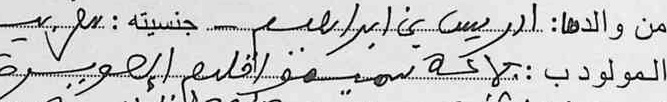 من والدها: ادريس بن ابراهيم جنسيته: مغربي
المولود ب: جماعة سميمو اقليم الصويرة